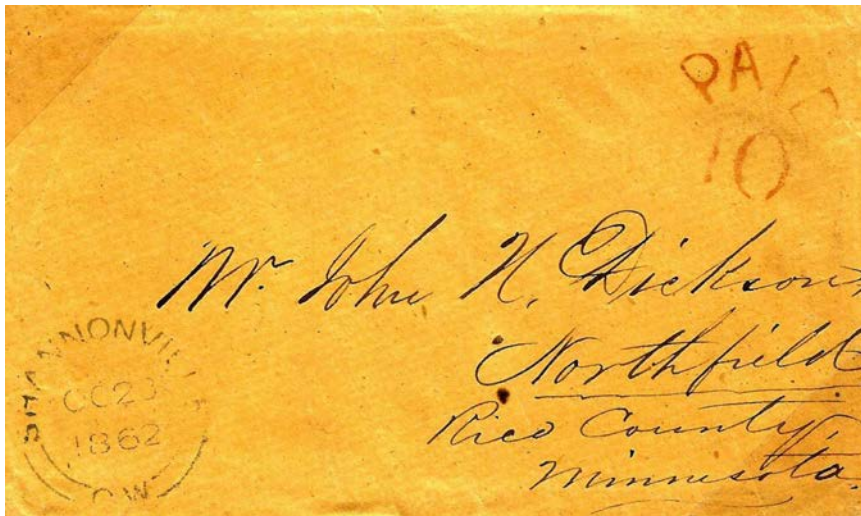 PAID
10
Mr. John N. Dickson,
Northfield
Rice County,
Minnesota.
SHANNONVILLE
OC 23
1862
C.W